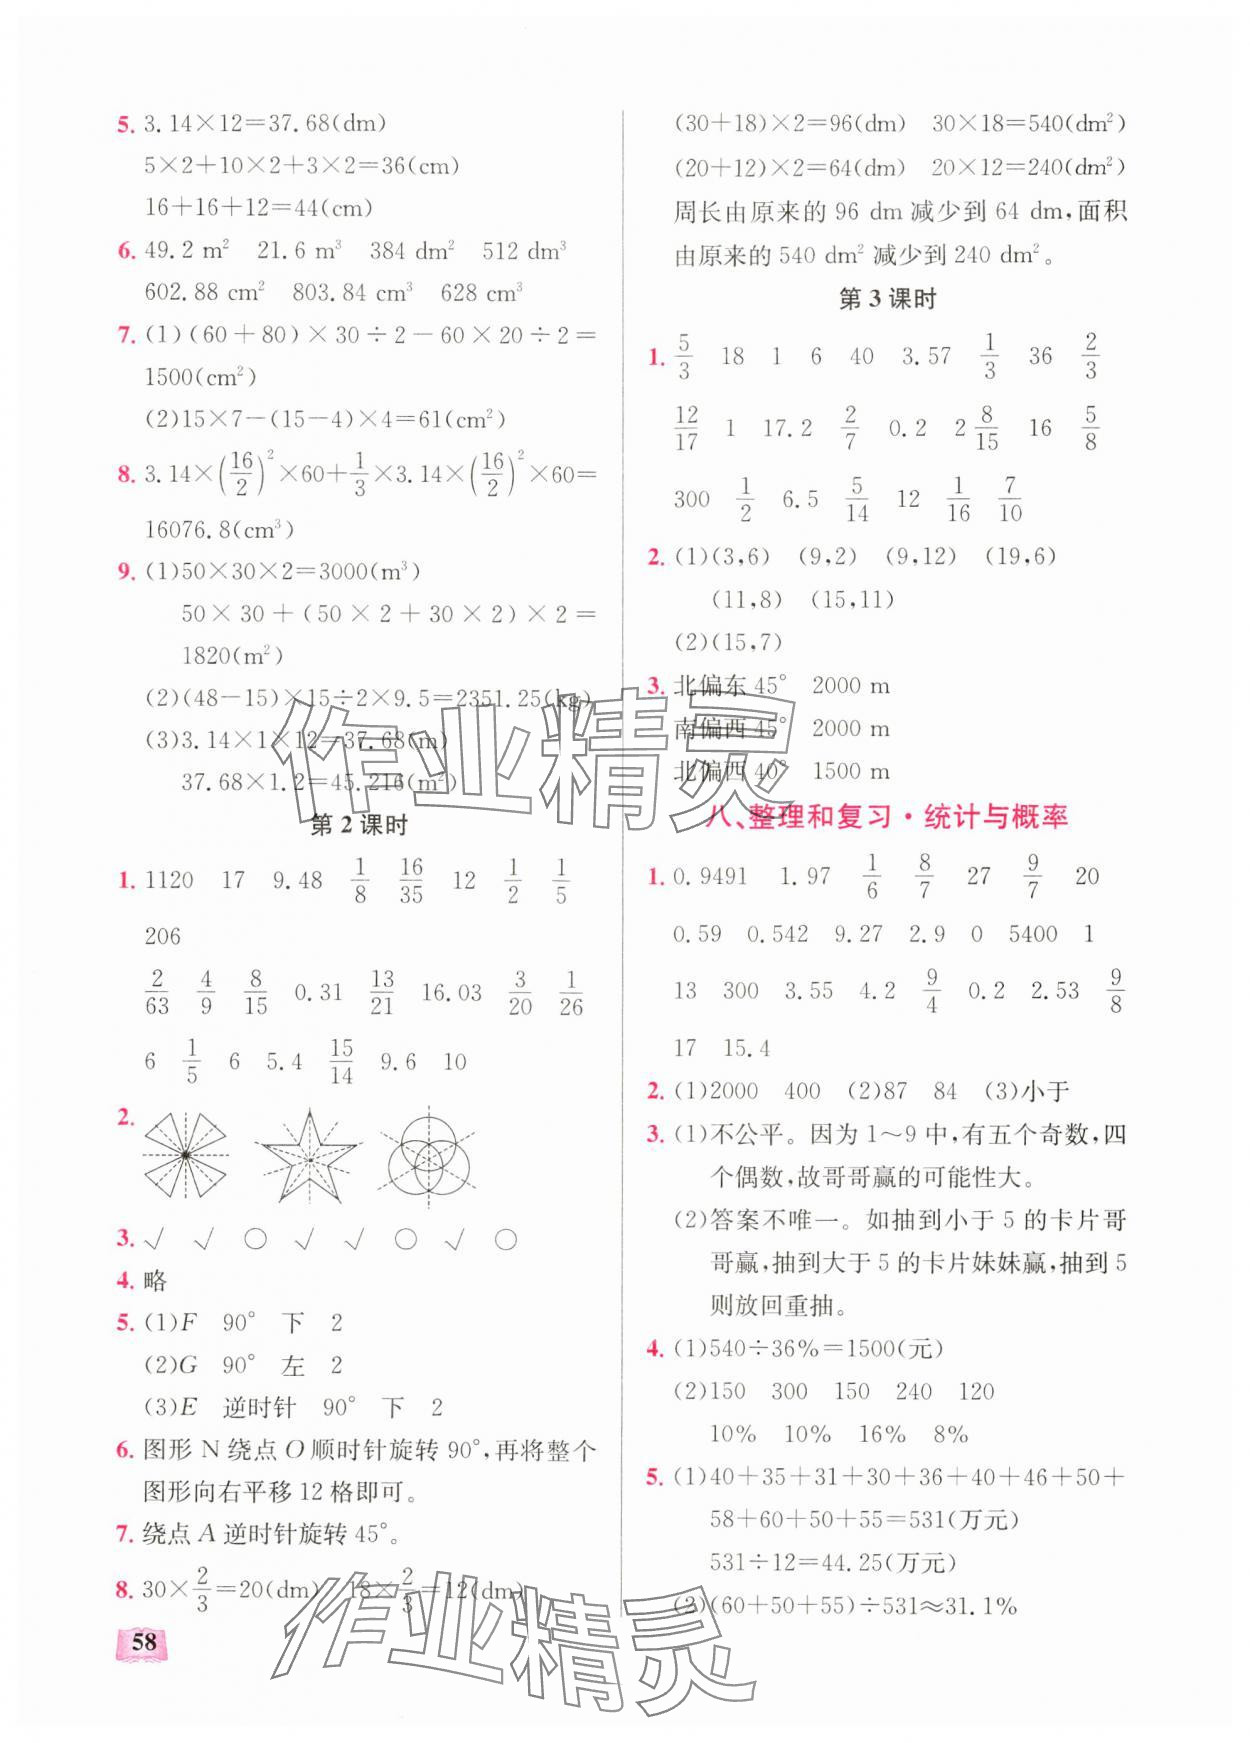 5. 3.14×12=37.68(dm)
5×2+10×2+3×2=36(cm)
16+16+12=44(cm)
6. 49.2 m² 21.6 m³ 384 dm² 512 dm³
602.88 cm² 803.84 cm³ 628 cm³
7. (1)(60+80)×30÷2-60×20÷2=
1500(cm²)
(2)15×7-(15-4)×4=61(cm²)
8. 3.14×(16/2)²×60+1/3×3.14×(16/2)²×60=
16076.8(cm³)
9. (1)50×30×2=3000(m³)
50×30+(50×2+30×2)×2=
1820(m²)
(2)(48-15)×15÷2×9.5=2351.25(kg)
(3)3.14×1×12=37.68(m)
37.68×1.2=45.216(m²)
第2课时
1. 1120 17 9.48 1/8 16/35 12 1/2 1/5
206
2/63 4/9 8/15 0.31 13/21 16.03 3/20 1/26
6 1/5 6 5.4 15/14 9.6 10
2.
3. √ √ ○ √ √ ○ √ ○
4. 略
5. (1)F 90° 下 2
(2)G 90° 左 2
(3)E 逆时针 90° 下 2
6. 图形 N 绕点 O 顺时针旋转 90°,再将整个
图形向右平移 12 格即可。
7. 绕点 A 逆时针旋转 45°。
8. 30×2/3=20(dm) 18×2/3=12(dm)
58
(30+18)×2=96(dm) 30×18=540(dm²)
(20+12)×2=64(dm) 20×12=240(dm²)
周长由原来的 96 dm 减少到 64 dm,面积
由原来的 540 dm² 减少到 240 dm²。
第3课时
1. 5/3 18 1 6 40 3.57 1/3 36 2/3
12/17 1 17.2 2/7 0.2 2 8/15 16 5/8
300 1/2 6.5 5/14 12 1/16 7/10
2. (1)(3,6) (9,2) (9,12) (19,6)
(11,8) (15,11)
(2)(15,7)
3. 北偏东 45° 2000 m
南偏西 45° 2000 m
北偏西 40° 1500 m
八、整理和复习·统计与概率
1. 0.9491 1.97 1/6 8/7 27 9/7 20
0.59 0.542 9.27 2.9 0 5400 1
13 300 3.55 4.2 9/4 0.2 2.53 9/8
17 15.4
2. (1)2000 400 (2)87 84 (3)小于
3. (1)不公平。因为 1～9 中,有五个奇数,四
个偶数,故哥哥赢的可能性大。
(2)答案不唯一。如抽到小于 5 的卡片哥
哥赢,抽到大于 5 的卡片妹妹赢,抽到 5
则放回重抽。
4. (1)540÷36%=1500(元)
(2)150 300 150 240 120
10% 10% 16% 8%
5. (1)40+35+31+30+36+40+46+50+
58+60+50+55=531(万元)
531÷12=44.25(万元)
(2)(60+50+55)÷531≈31.1%
作业精灵
作业精灵